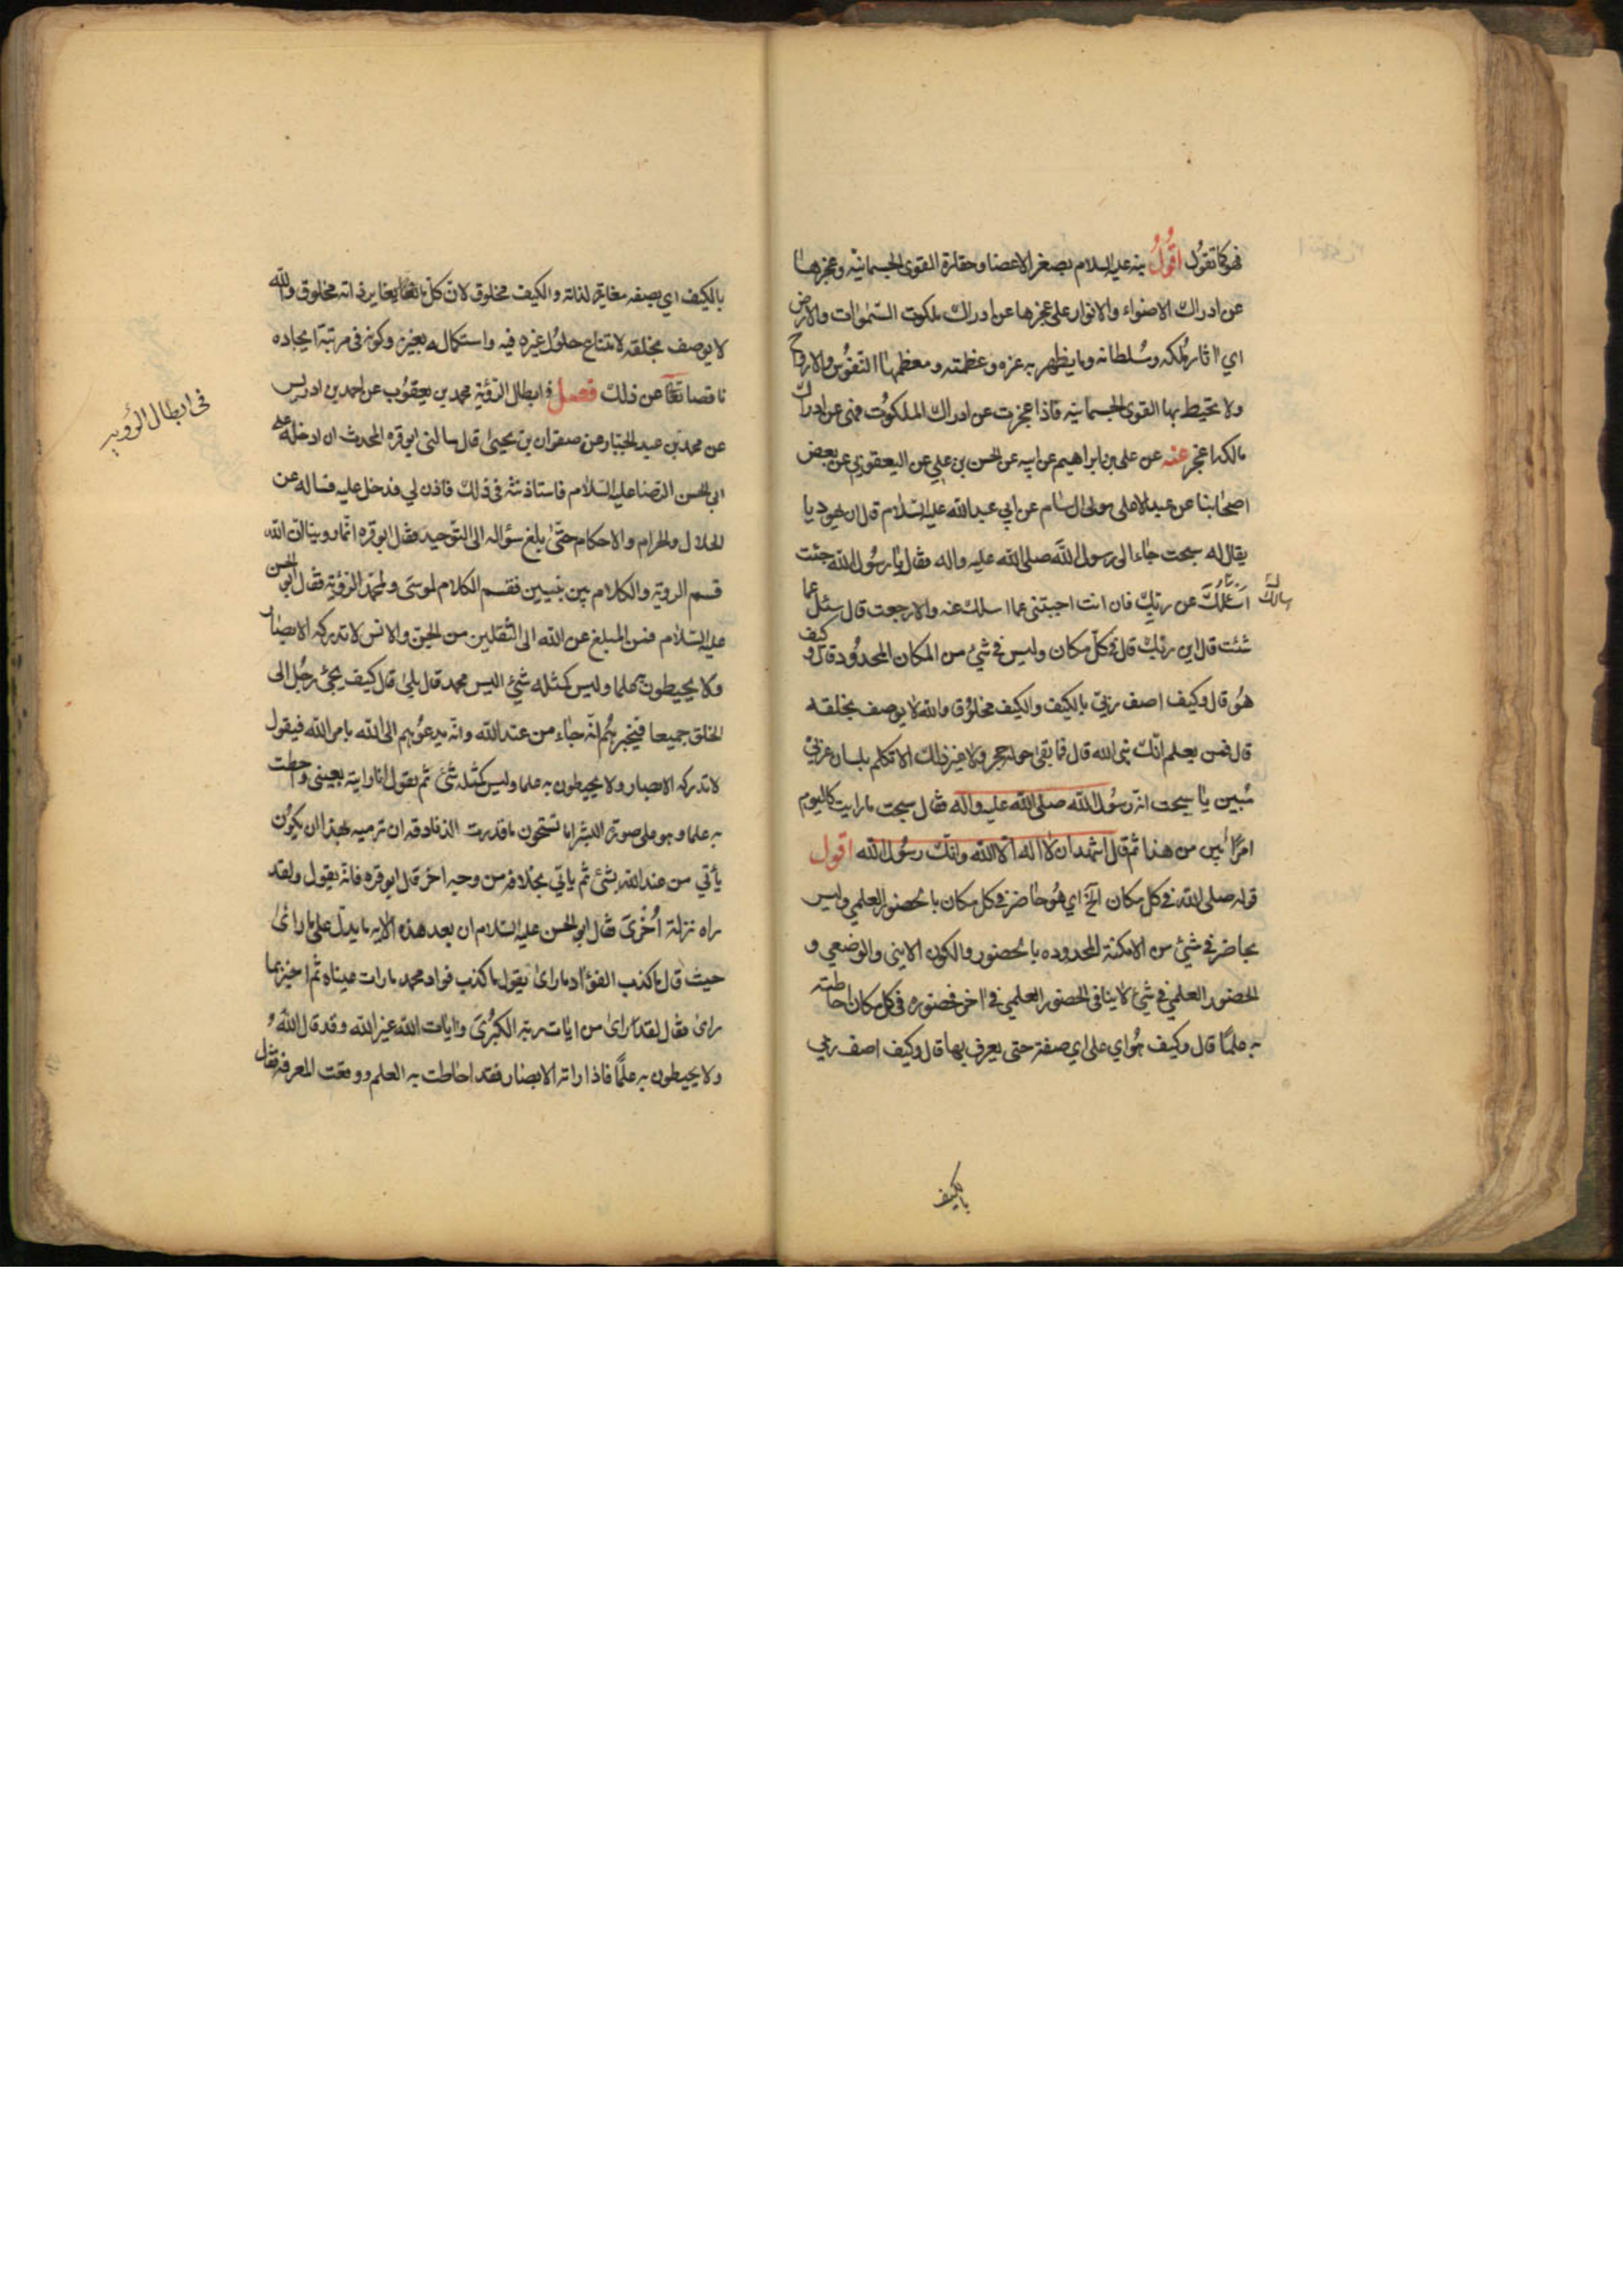 فهو كما تقول اقول نبه عليه السلام بصغر الاعضا وحقارة القوى الجسمانيه وعجزها
عن ادراك الاضواء والانوار على عجزها عن ادراك ملكوت السموات والارض
اي اثار ملكه وسلطانه وما يظهر به عزه وعظمته ومعظمها النفوس والارواح
ولا تحيط بها القوى الجسمانيه فاذا عجزت عن ادراك الملكوت فهى عن ادراك
مالكه اعجز عنه عن على بن ابراهيم عن ابيه عن الحسن بن علي عن اليعقوبي عن بعض
اصحابنا عن عبد الاعلى مولى ال سام عن ابي عبد الله عليه السلام قال ان يهوديا
يقال له سبحت جاء الى رسول الله صلى الله عليه واله فقال يا رسول الله جئت
اسئلك عن ربك فان انت اجبتنى عما اسلك عنه والا رجعت قال سئل عما
شئت قال اين ربك قال فى كل مكان وليس في شئ من المكان المحدود قال و كيف
هو قال وكيف اصف ربي بالكيف والكيف مخلوق والله لا يوصف بخلقه
قال فمن يعلم انك نبى الله قال فما بقى حوله حجر ولا غير ذلك الا تكلم بلسان عربي
مبين يا سبحت انه رسول الله صلى الله عليه واله فقال سبحت ما رايت كاليوم
امرا ابين من هذا ثم قال اشهد ان لا اله الا الله وانك رسول الله اقول
قوله صلى الله في كل مكان الخ اي هو حاضر في كل مكان بالحضور العلمي وليس
بحاضر في شئ من الامكنة المحدوده بالحضور والكون الاينى والوضعي و
الحضور العلمي في شئ لا ينافى الحضور العلمي في اخر فحضوره فى كل مكان احاطته
به علما قال وكيف هو اي على اي صفة حتى يعرف بها قال وكيف اصف ربي
بالكيف
بالكيف اي بصفه مغايرة لذاته والكيف مخلوق لان كل ما يغاير ذاته مخلوق والله
لا يوصف بخلقه لامتناع حلول غيره فيه واستكماله بغيره وكونه فى مرتبة ايجاده
ناقصا تعا عن ذلك فصل في ابطال الرؤية محمد بن يعقوب عن احمد بن ادريس
عن محمد بن عبد الجبار عن صفوان بن يحيى قال سالنى ابو قره المحدث ان ادخله على
ابى الحسن الرضا عليه السلام فاستاذنته فى ذلك فاذن لي فدخل عليه فساله عن
الحلال والحرام والاحكام حتى بلغ سؤاله الى التوحيد فقال ابو قره انا روينا ان الله
قسم الروية والكلام بين نبيين فقسم الكلام لموسى ولمحمد الرؤية فقال ابو الحسن
عليه السلام فمن المبلغ عن الله الى الثقلين من الجن والانس لا تدركه الابصار
ولا يحيطون به علما وليس كمثله شئ اليس محمد قال بلى قال كيف يجئ رجل الى
الخلق جميعا فيخبرهم انه جاء من عند الله وانه يدعوهم الى الله بامر الله فيقول
لا تدركه الابصار ولا يحيطون به علما وليس كمثله شئ ثم يقول انا رايته بعينى واحطت
به علما وهو على صورة البشر اما تستحون ما قدرت الزنادقه ان ترميه بهذا ان يكون
يأتي من عند الله بشئ ثم ياتي بخلافه من وجه اخر قال ابو قره فانه يقول ولقد
راه نزلة اخرى فقال ابو الحسن عليه السلام ان بعد هذه الايه ما يدل على ما راى
حيث قال ما كذب الفؤاد ما راى يقول ما كذب فواد محمد ما رات عيناه ثم اخبر بما
راى فقال لقد راى من ايات ربه الكبرى وايات الله غير الله وقد قال الله و
ولا يحيطون به علما فاذا راته الابصار فقد احاطت به العلم ووقعت المعرفة فقال
فى ابطال الرؤيه